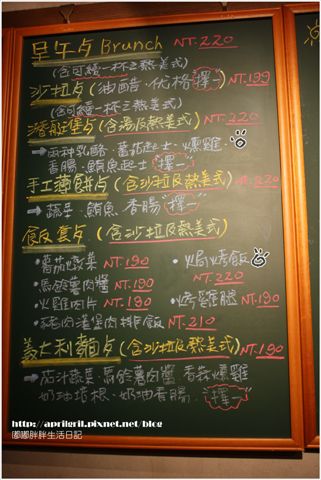 早午点 Brunch NT.220
(含可續一杯之熱美式)
沙拉点 (油醋·优格 擇一) NT.199
(含可續一杯之熱美式)
潛艇堡点 (含湯及熱美式) NT.220
→兩種乳酪·蕃茄起士·燻雞·
香腸·鮪魚起士 擇一
手工薄餅点 (含沙拉及熱美式)
→蔬果·鮪魚·香腸 擇一
飯套点 (含沙拉及熱美式)
·蕃茄燉菜 NT.190
·焗烤飯 NT.220
·馬鈴薯肉醬 NT.190
·火雞肉片 NT.190
·烤雞腿 NT.190
·豬肉漢堡肉排飯 NT.210
義大利麵点 (含沙拉及熱美式) NT.190
→茄汁蔬菜·馬鈴薯肉醬·香蒜燻雞
奶油培根·奶油香腸 擇一
http://aprilgril.pixnet.net/blog
嘟嘟胖胖生活日記